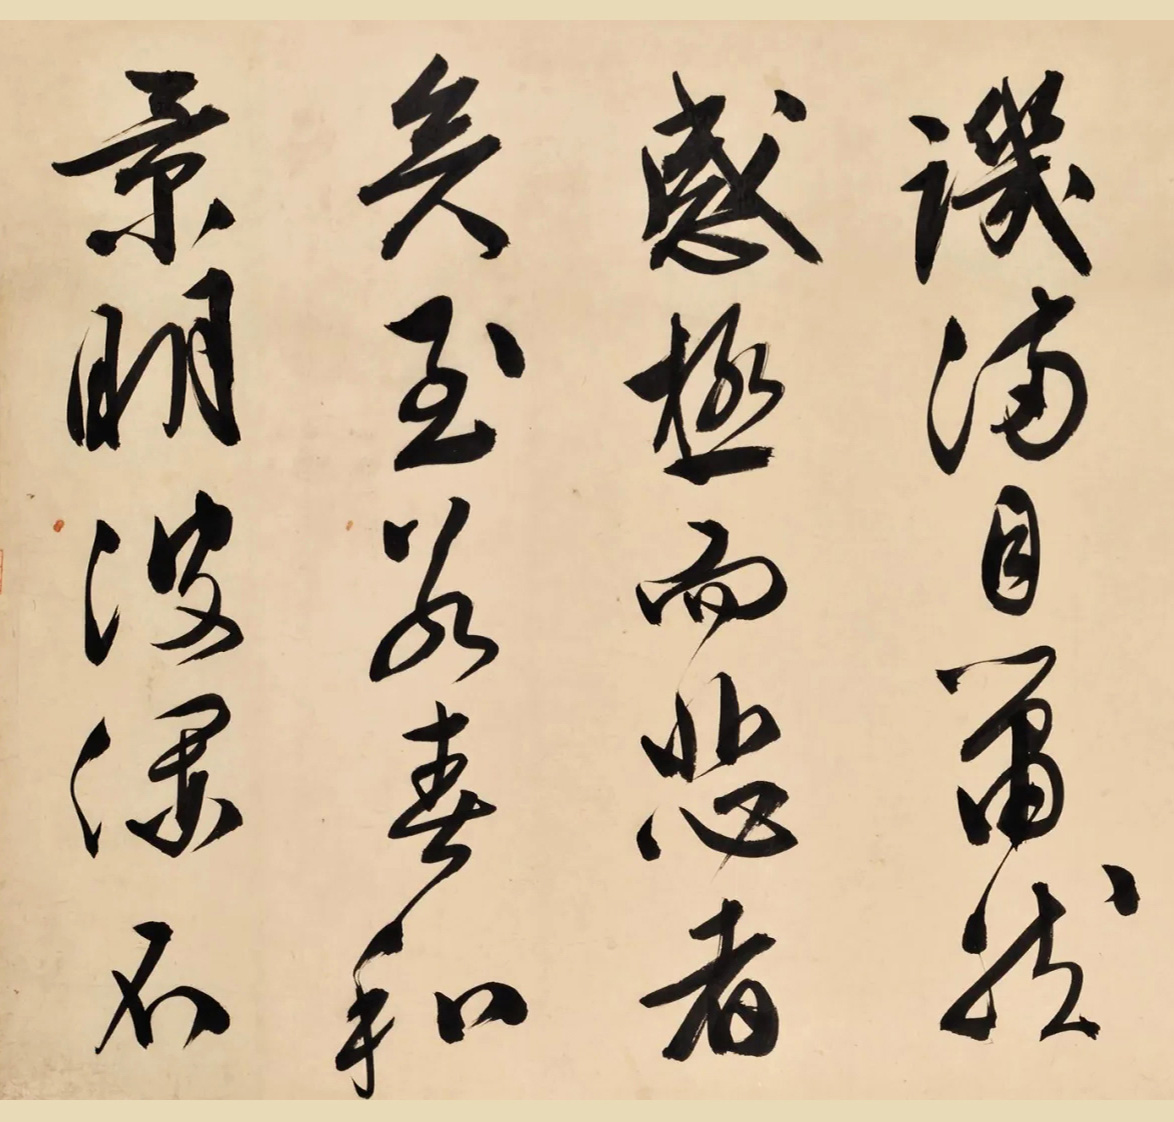 譏滿目蕭然
感極而悲者
矣至若春和
景明波瀾不